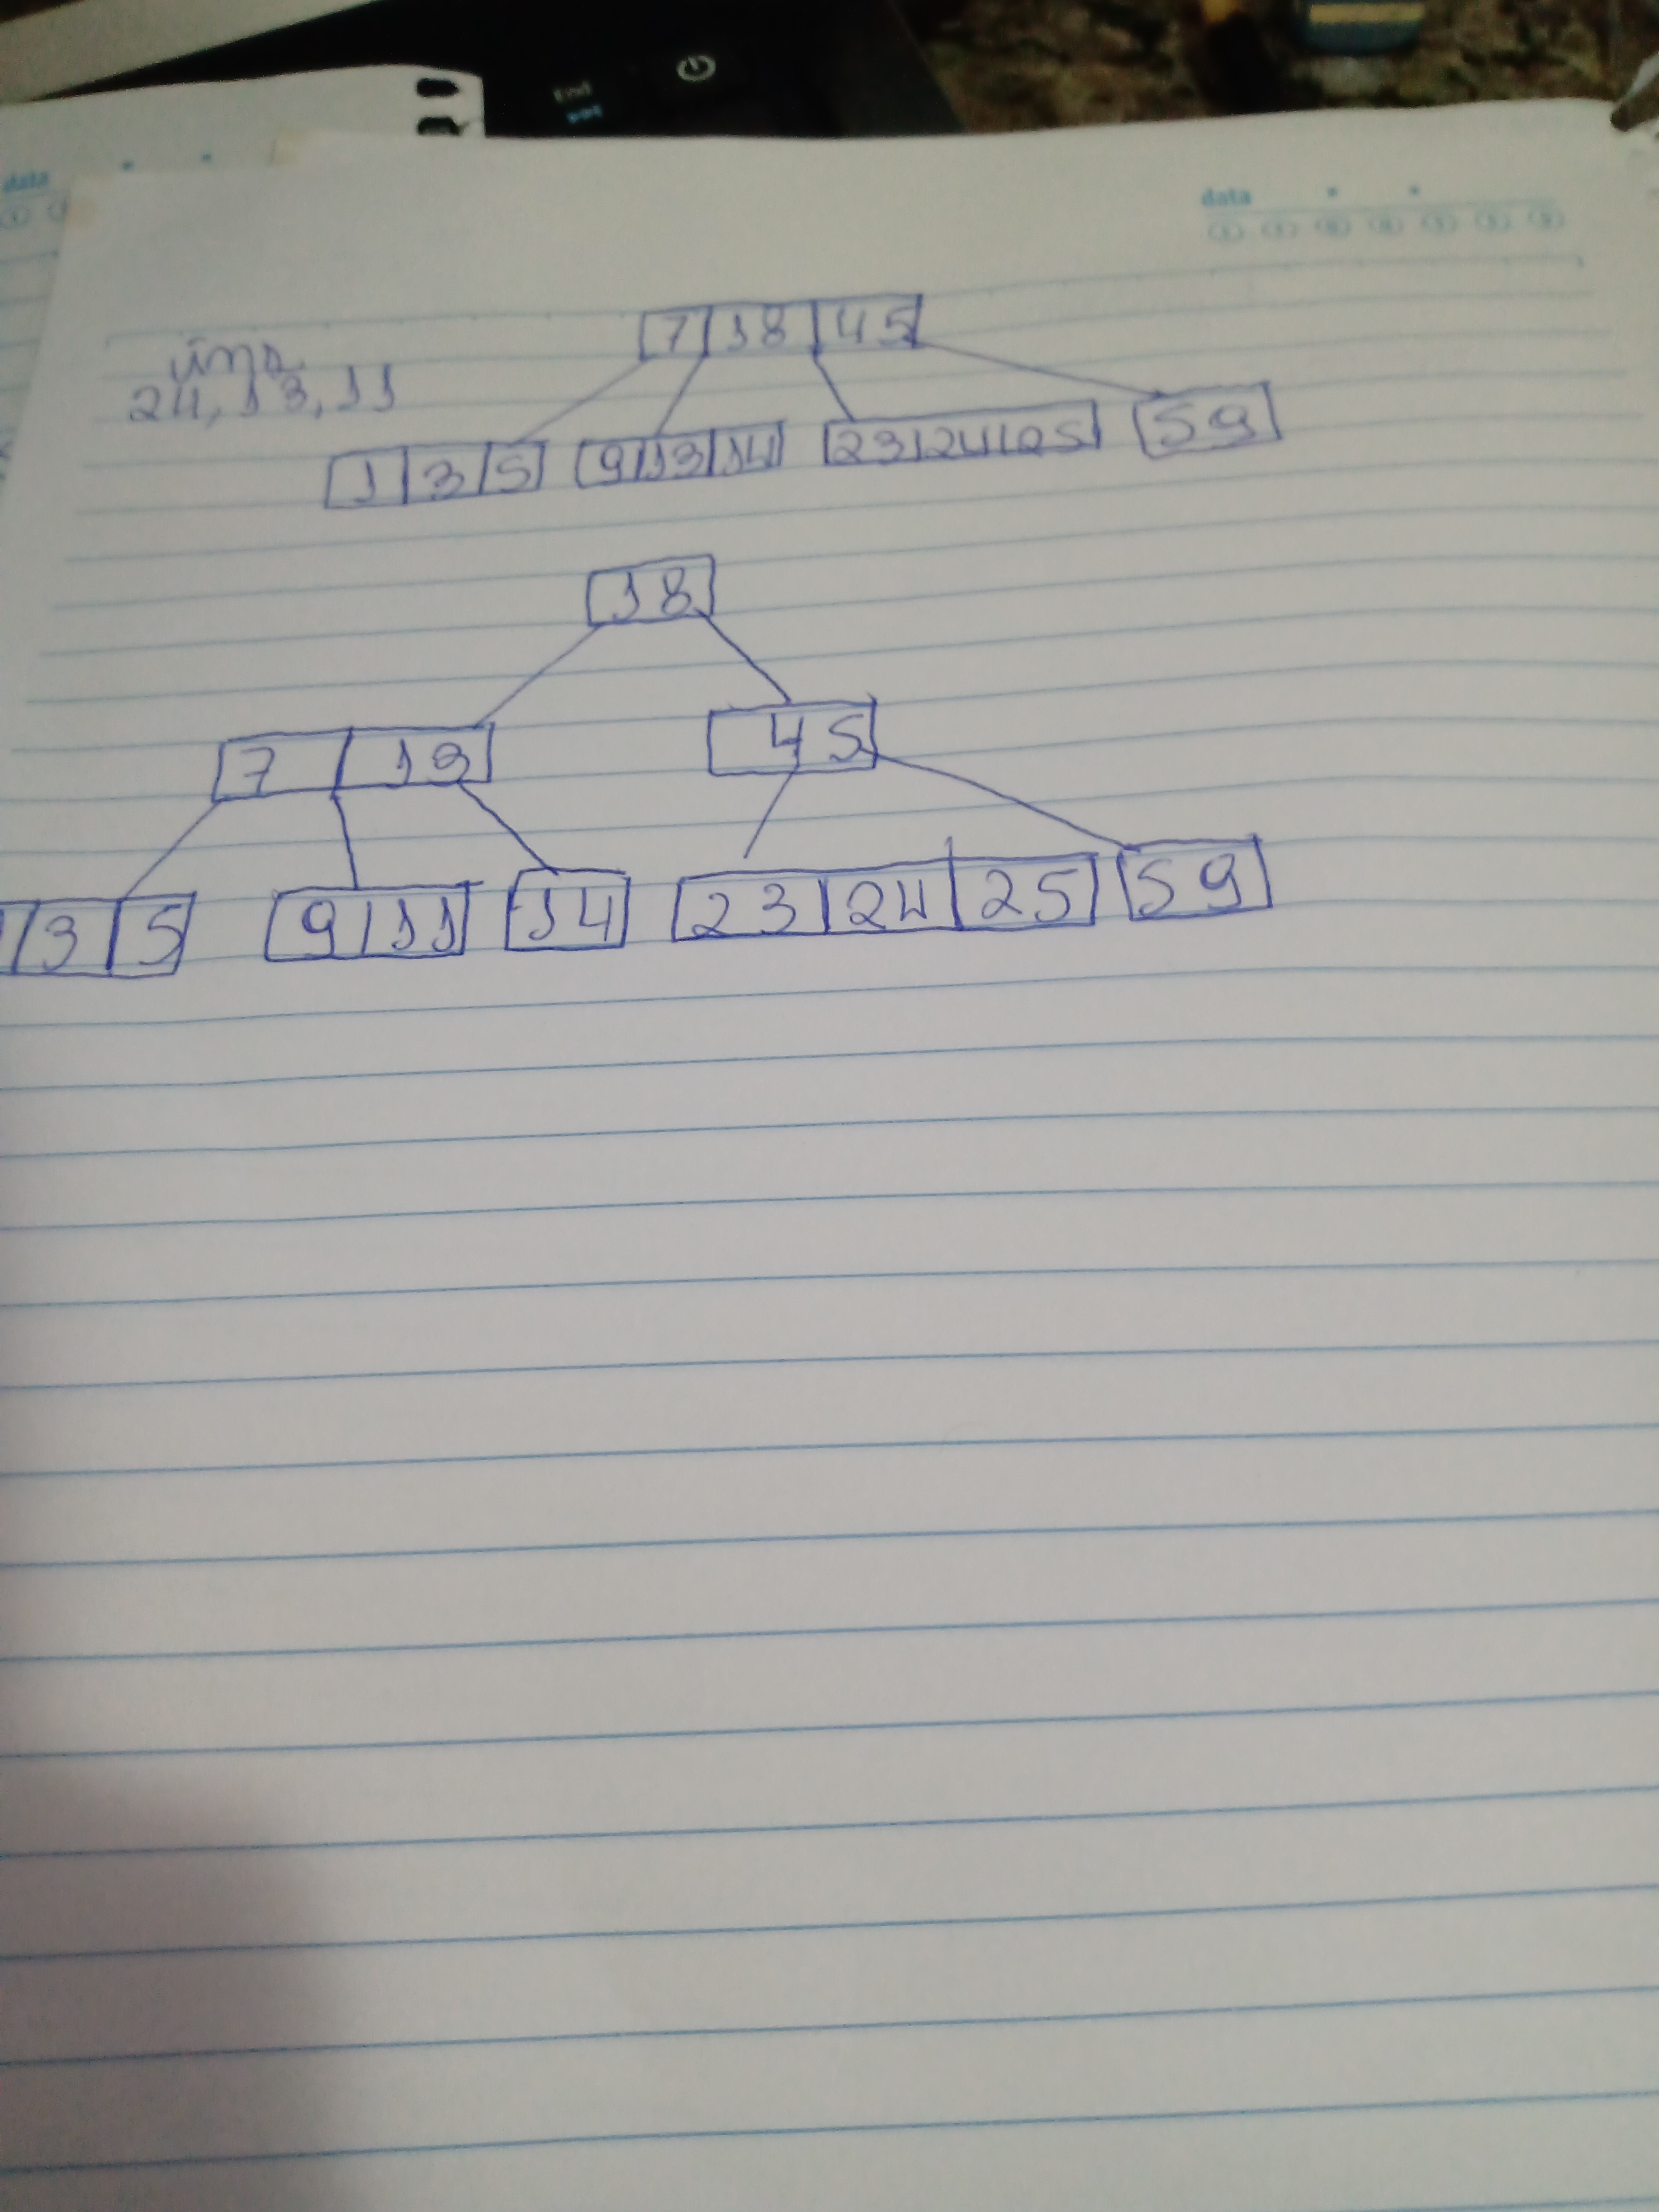 End
data
data
7 18 45
24, 13, 11
1 3 5 9 13 14 23 24 25 59
18
7 13 45
3 5 9 11 14 23 24 25 59